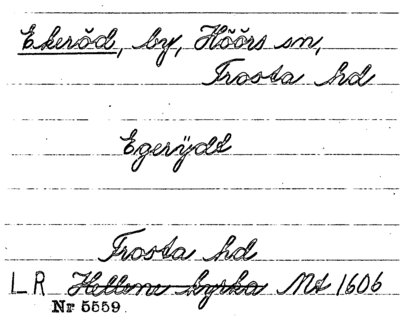 Ekerŏd, by, Hŏŏrs sn,
Frosta hd
Egerÿdt
Frosta hd
LR Hellene kyrka Mt 1606
Nr 5559